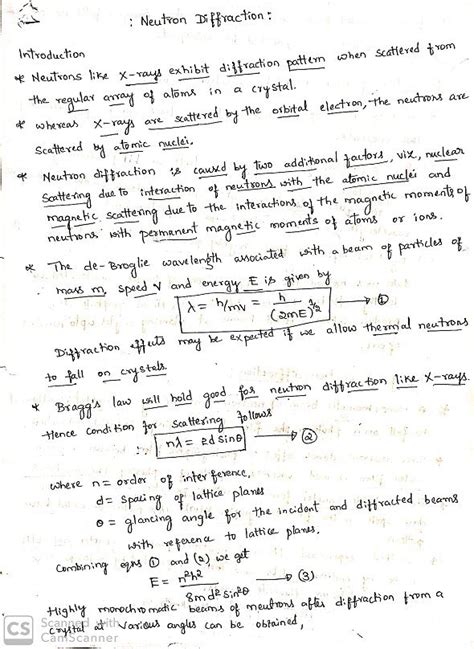 : Neutron Diffraction :
Introduction
* Neutrons like X-rays exhibit diffraction pattern when scattered from
the regular array of atoms in a crystal.
* whereas X-rays are scattered by the orbital electron, the neutrons are
Scattered by atomic nuclei.
* Neutron diffraction is caused by two additional factors, viz, nuclear
Scattering due to interaction of neutrons with the atomic nuclei and
magnetic scattering due to the interactions of the magnetic moments of
neutrons with permanent magnetic moments of atoms or ions.
* The de-Broglie wavelength associated with a beam of particles of
mass m, speed V and energy E is given by
λ = h/mv = h/(2mE)^1/2 → ①
Diffraction effects may be expected if we allow thermal neutrons
to fall on crystals.
* Bragg's law will hold good for neutron diffraction like X-rays.
Hence condition for scattering follows
nλ = 2d sinθ → ②
where n = order of interference,
d = spacing of lattice planes
θ = glancing angle for the incident and diffracted beams
with reference to lattice planes,
Combining eqns ① and (2), we get
E = n²h²/8md² sin²θ → (3)
Highly monochromatic beams of neutrons after diffraction from a
crystal at various angles can be obtained,
CS Scanned with
CamScanner